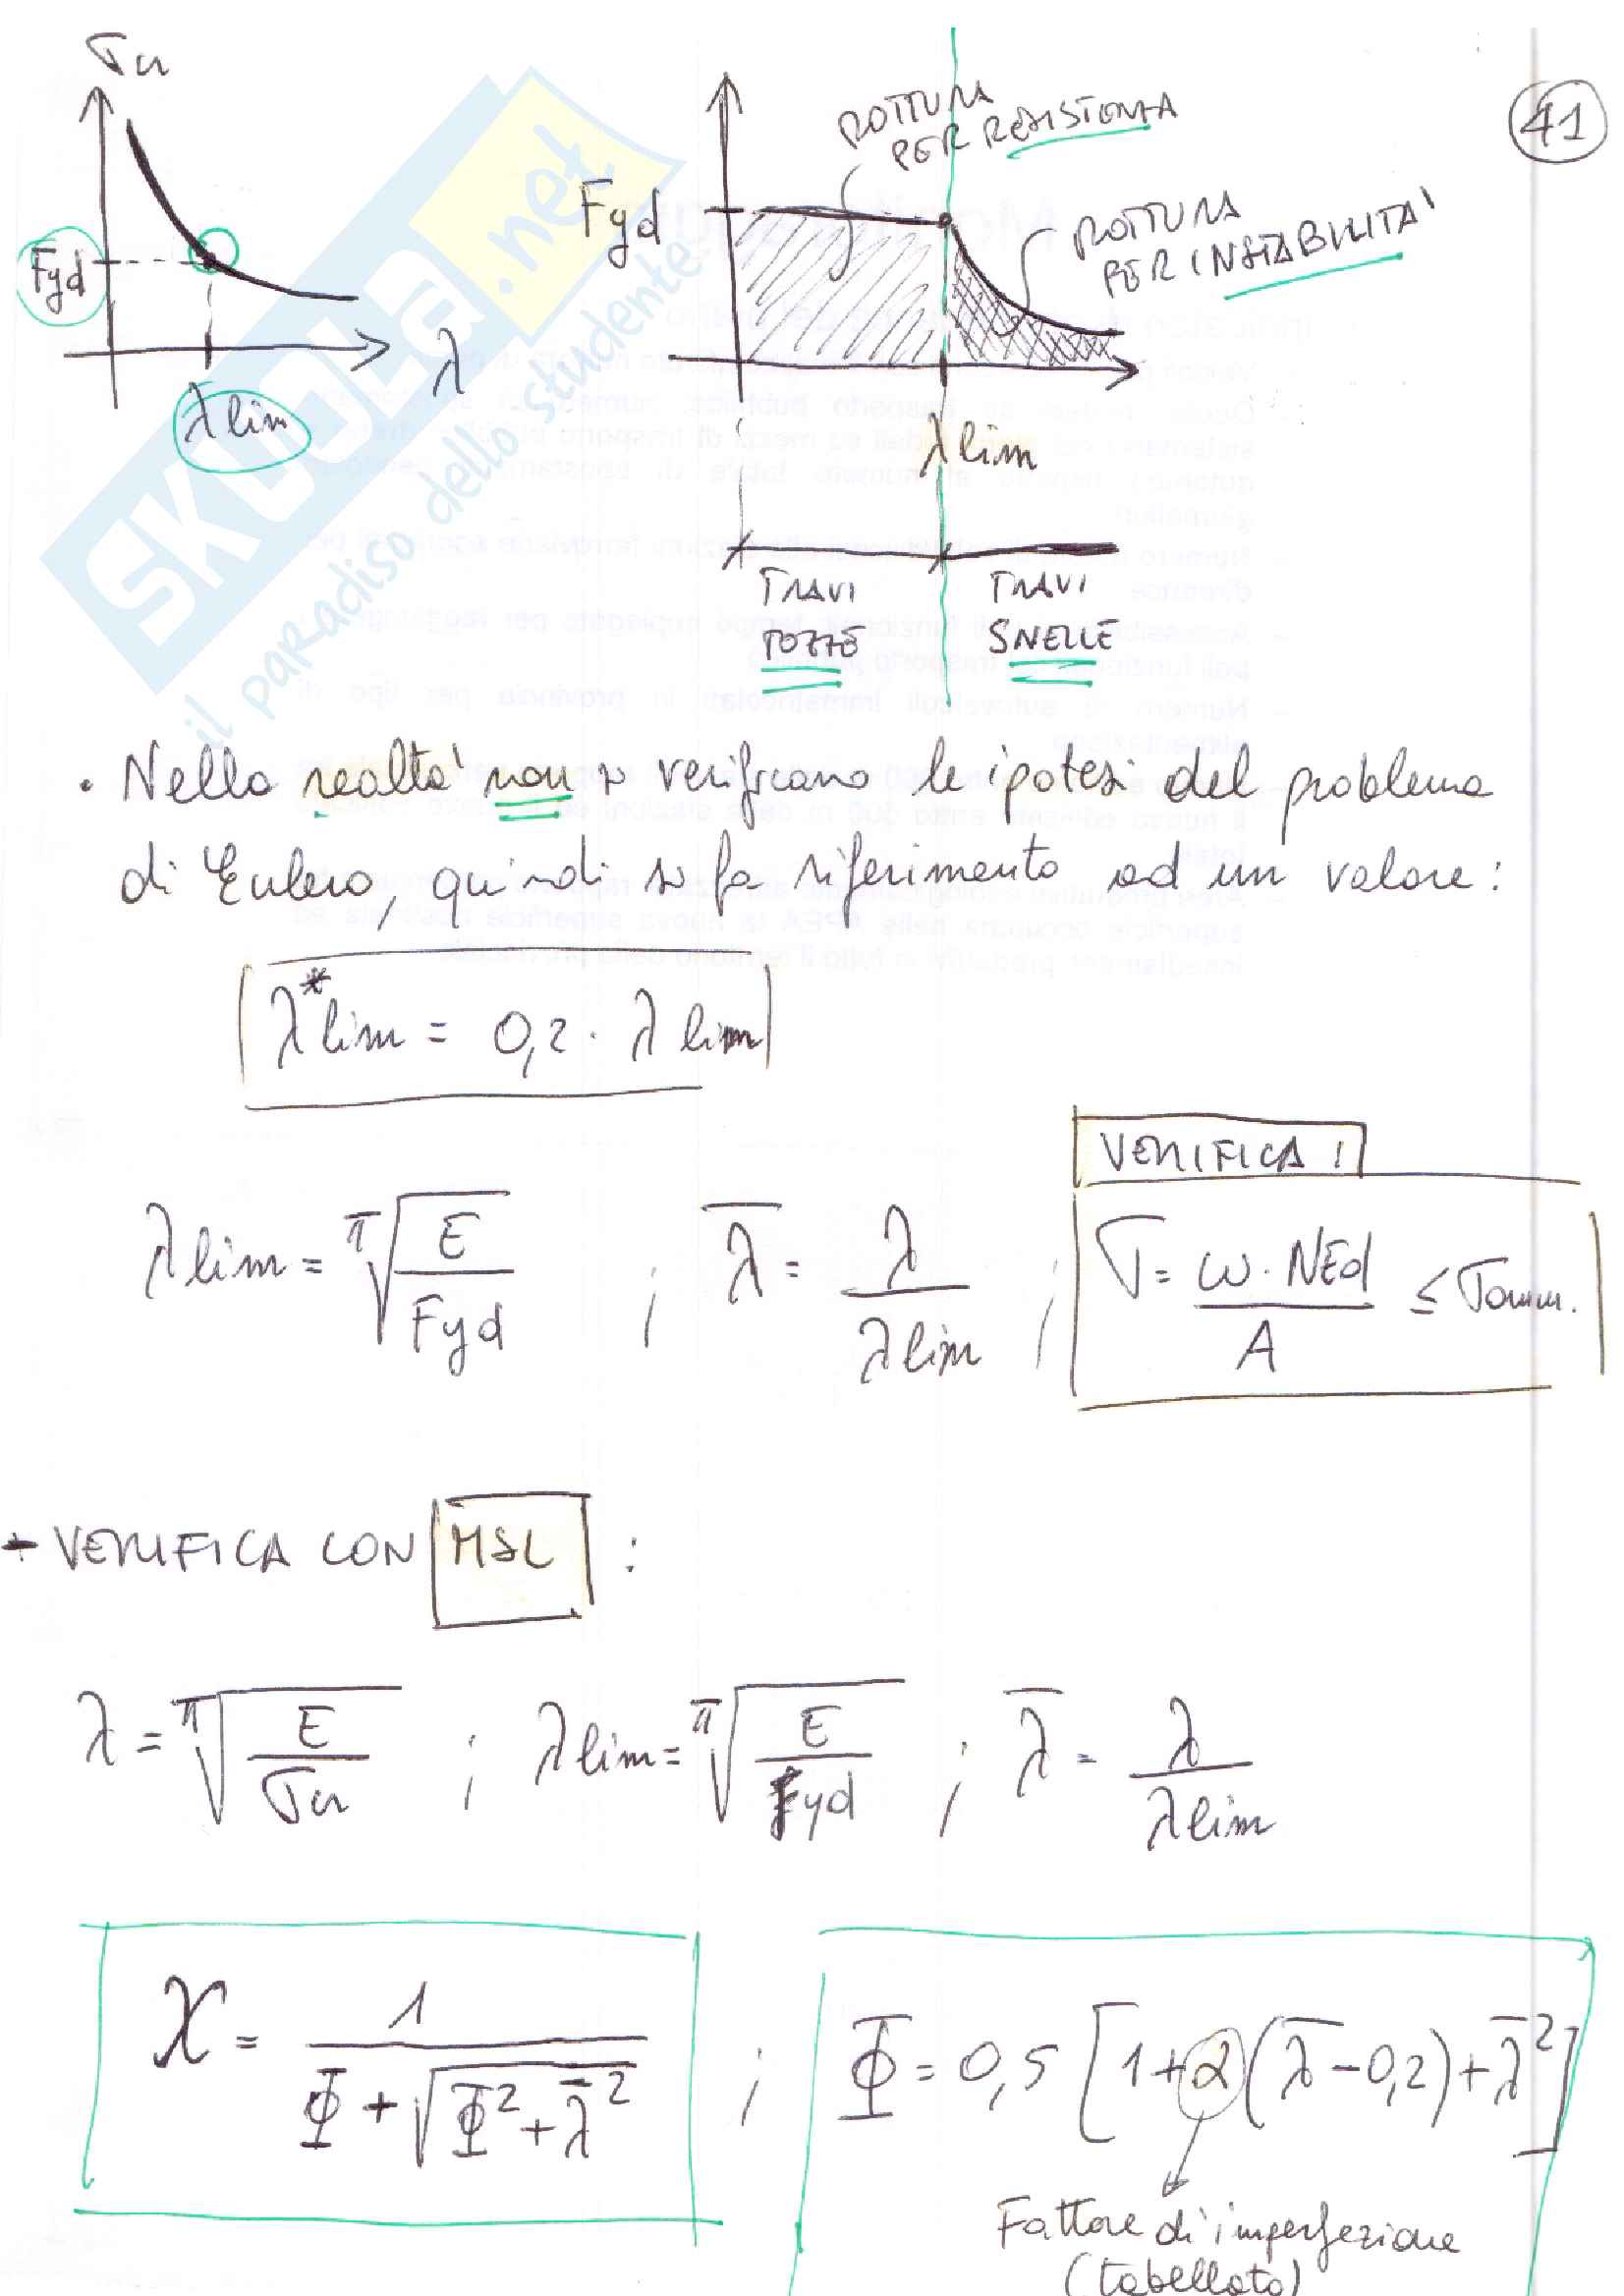 σcr
Fyd
λ
λlim
41
ROTTURA
PER RESISTENZA
Fyd
ROTTURA
PER INSTABILITA'
λlim
TRAVI
TOZZE
TRAVI
SNELLE
SKUOLA.net
il paradiso dello studente
• Nella realta' non si verificano le ipotesi del problema
di Eulero, quindi si fa riferimento ad un valore:
λ*lim = 0,2 · λlim
VERIFICA!
λlim = π√(E/Fyd) ; λ̅ = λ/λlim ; σ = ω·NEd/A ≤ σamm.
- VERIFICA CON MSL :
λ = π√(E/σcr) ; λlim = π√(E/Fyd) ; λ̅ = λ/λlim
χ = 1/(Φ + √(Φ² + λ̅²)) ; Φ = 0,5 [1+α(λ̅-0,2)+λ̅²]
Fattore di imperfezione
(tabellato)